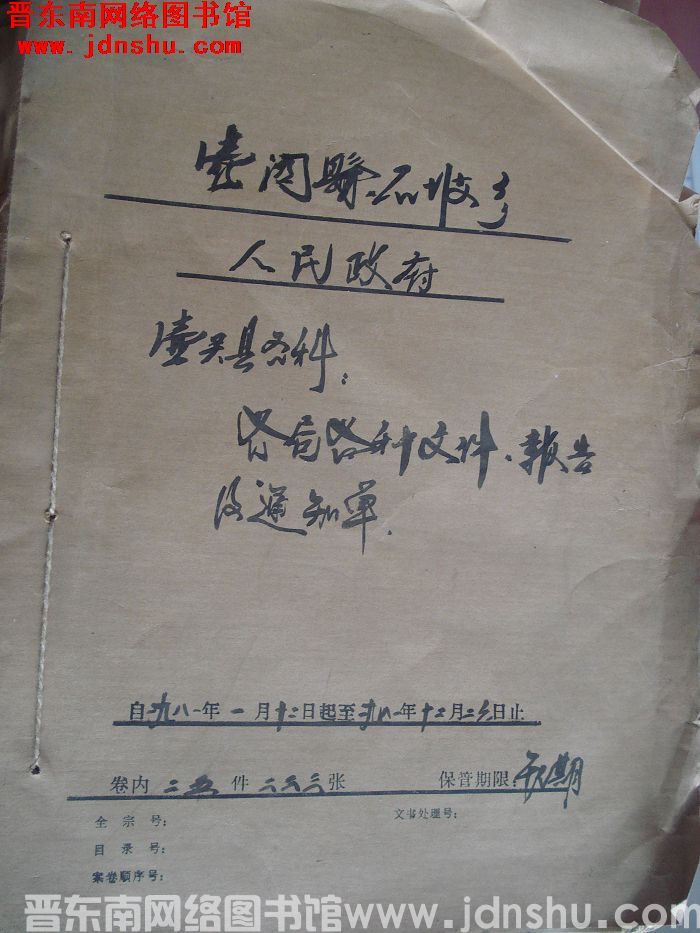 晋东南网络图书馆
www.jdnshu.com
壶关縣石坡乡
人民政府
壶关县各科:
各局各种文件、報告
及通知单.
自一九八一年一月十二日起至一九八一年十二月二 日止
卷内二五件二 三张 保管期限: 期
全宗号: 文书处理号:
目录号:
案卷顺序号:
晋东南网络图书馆www.jdnshu.com